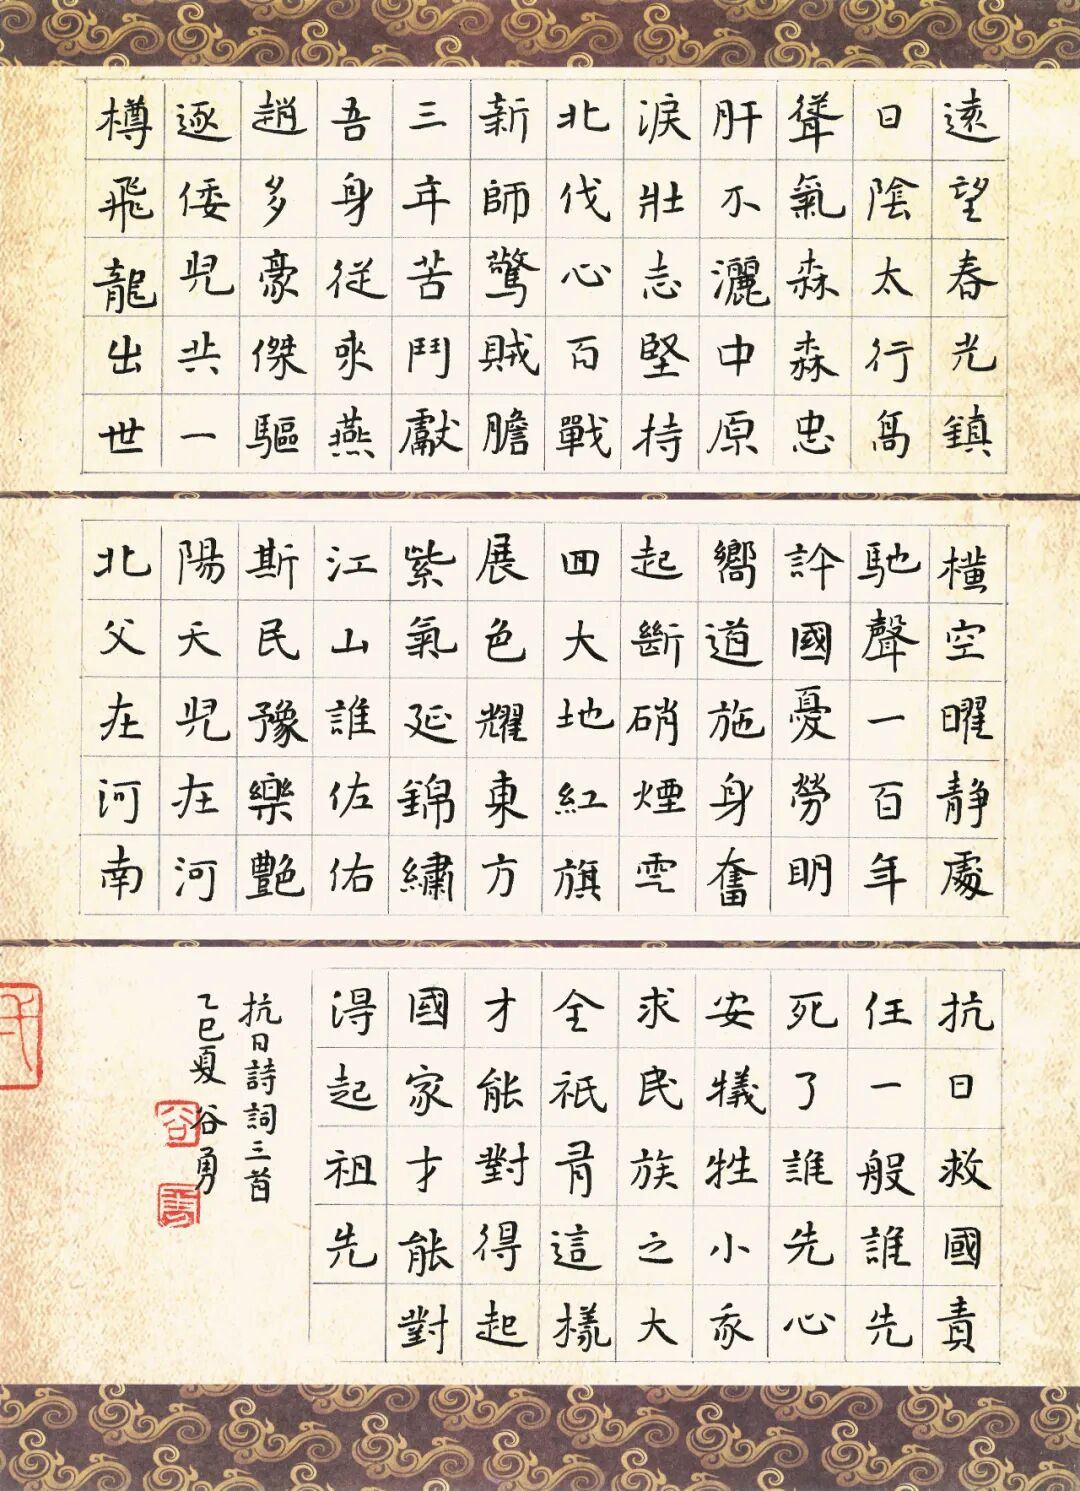 遠望春光鎮
日陰太行高
聳氣森森忠
肝不灑中原
淚壯志堅持
北伐心百戰
新師驚賊膽
三年苦鬥獻
吾身從來燕
趙多豪傑驅
逐倭兒共一
樽飛龍出世
橫空曜靜處
馳聲一百年
許國憂勞明
嚮道施身奮
起斷硝煙雲
四大地紅旗
展色耀東方
紫氣延錦繡
江山誰佐佑
斯民豫樂艷
陽天兒在河
北父在河南
抗日救國責
任一般誰先
死了誰先心
安犧牲小我
求民族之大
全祇有這樣
才能對得起
國家才能對
得起祖先
抗日詩詞三首
乙巳夏 谷勇
谷
勇